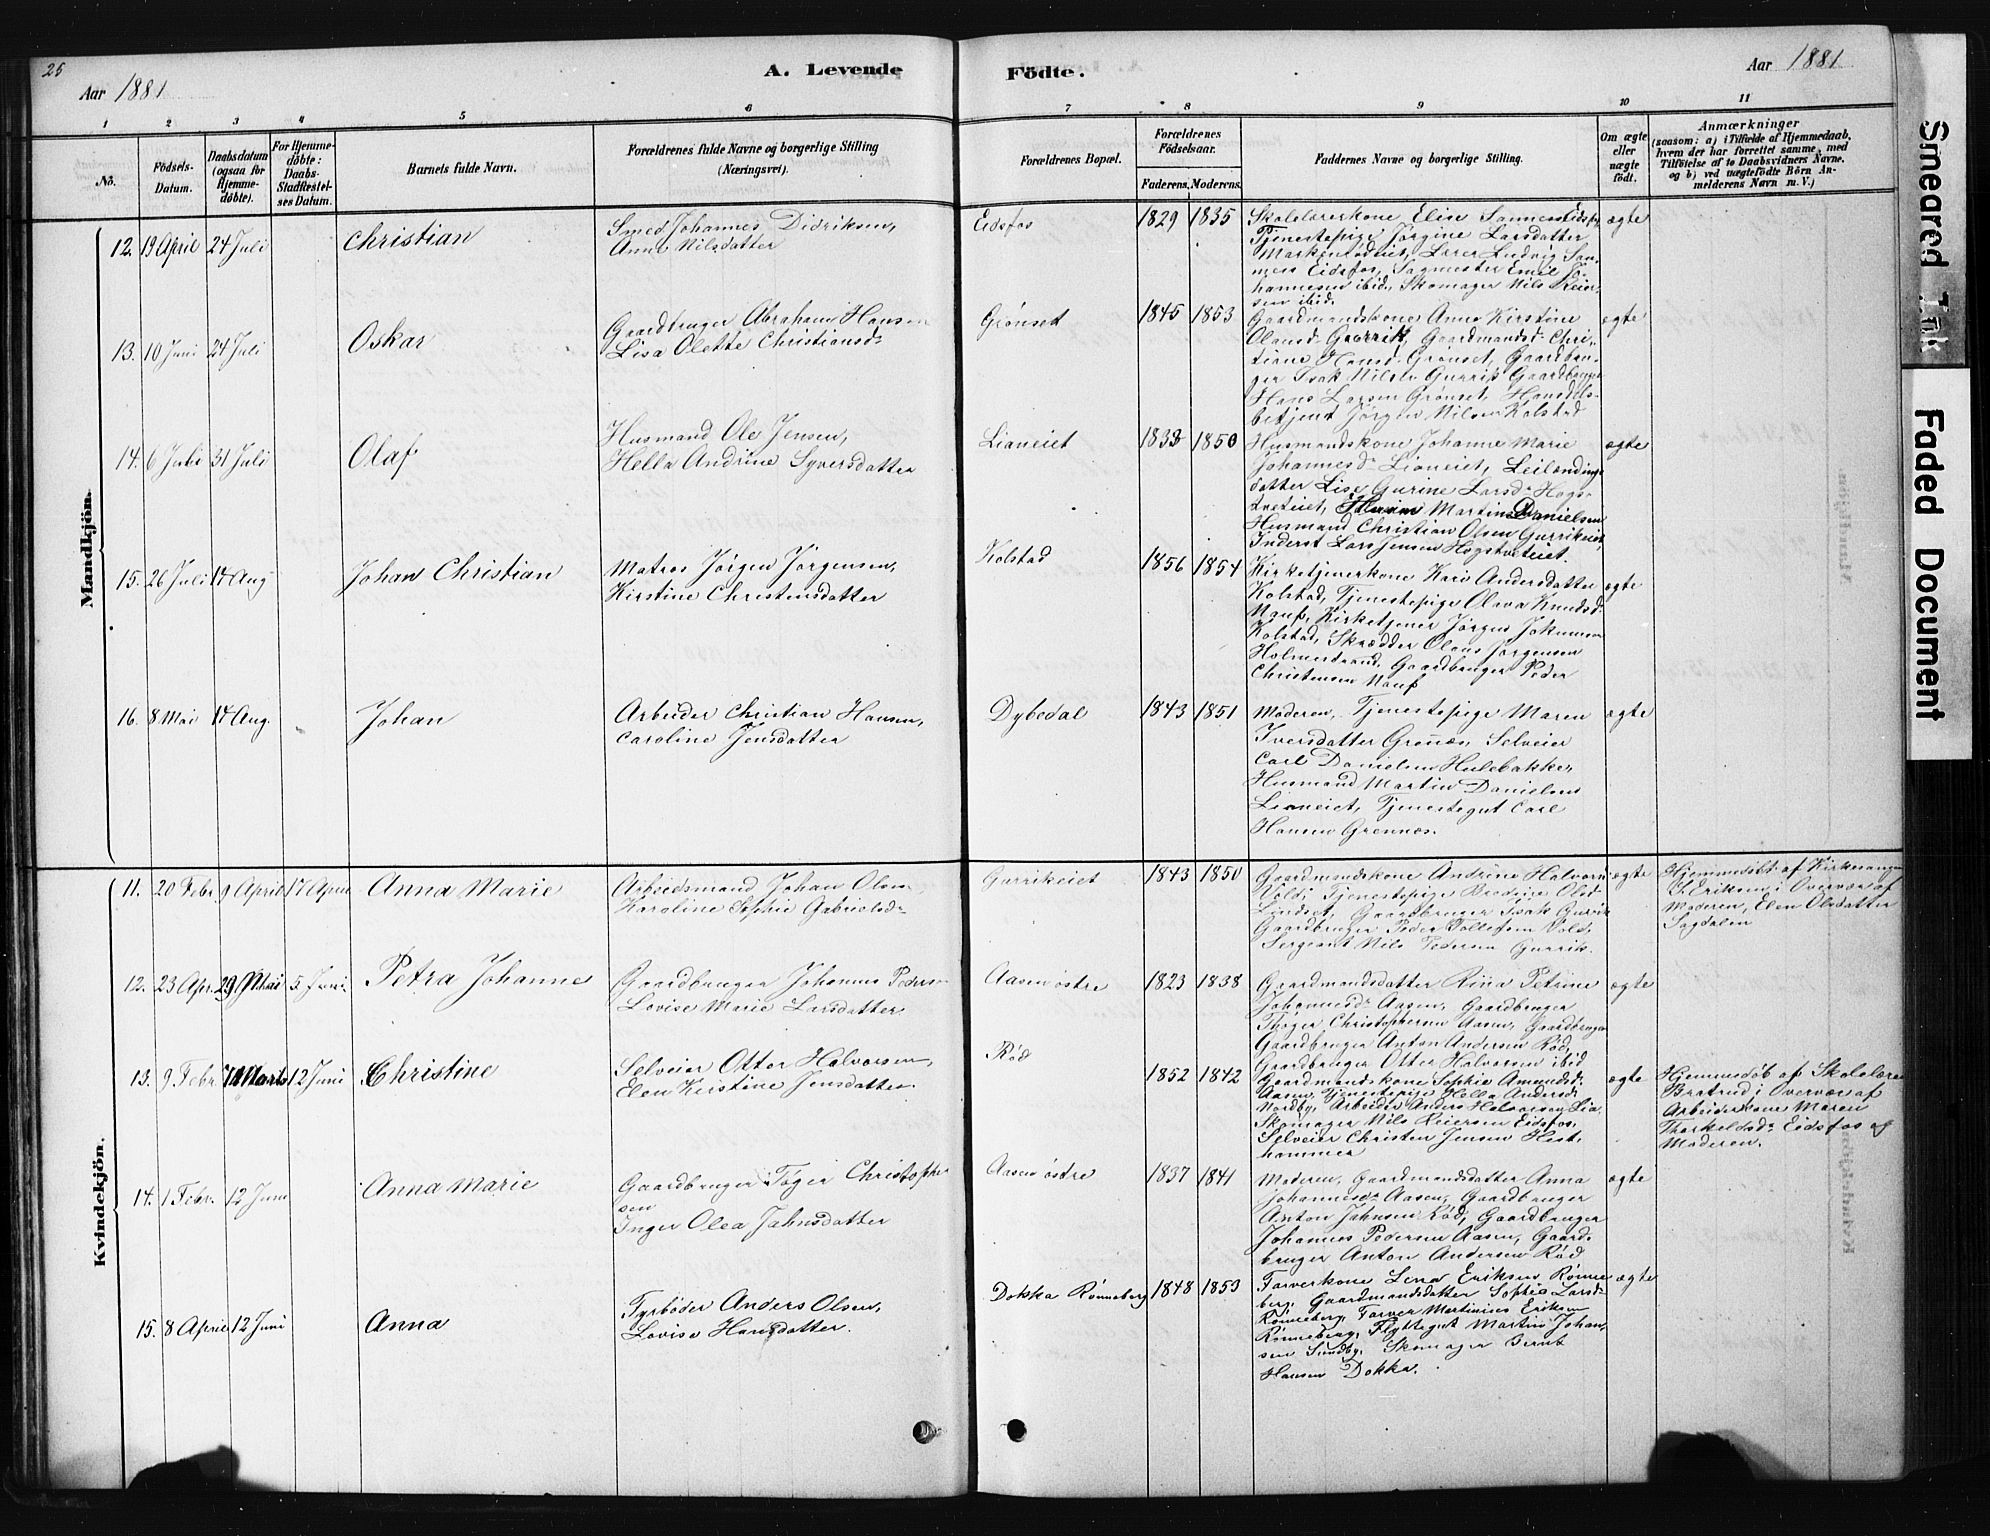 25
Aar 1881
A. Levende
Födte.
Aar 1881
1 2 3 4 5 6 7 8 9 10 11
No.
Födsels-
Datum.
Daabsdatum
(ogsaa for
Hjemme-
döbte).
For Hjemme-
døbte:
Daabs-
Stadfæstel-
ses Datum.
Barnets fulde Navn.
Forældrenes fulde Navne og borgerlige Stilling
(Næringsvei).
Forældrenes Bopæl.
Forældrenes
Födselsaar.
Faderens. Moderens.
Faddernes Navne og borgerlige Stilling.
Om ægte
eller
uægte
födt.
Anmærkninger
(saasom: a) i Tilfælde af Hjemmedaab,
hvem der har forrettet samme, med
Tilföielse af to Daabsvidners Navne.
og b) ved uægtefödte Börn An-
melderens Navn m. V.)
Mandkjön.
12. 19 April 24 Juli
Christian
Smed Johannes Didriksen,
Anne Nilsdatter
Eidsfos
1829 1835
Skolelærerkone Elise Sannes Eidsfos,
Tjenestepige Jørgine Larsdatter
Lærer Ludvig San-
nes Eidsfos, Sagmester Emil Jo-
hannesen ibid, Skomager Nils Reier-
sen ibid.
ægte
13. 10 Juni 24 Juli
Oskar
Gaardbruger Abraham Hansen
Lisa Olette Christiansd-
Grønset
1845 1853
Gaardmandskone Anne Kirstine
Olausd- Gurrik, Gaardmandsd- Chri-
tiane Hansd- Grønset, Gaardbru-
ger Isak Nilsen Gurrik Gaardbruger
Hans Larsen Grønset, Handels-
betjent Jørgen Nilsen Kolstad
ægte
14. 6 Juli 31 Juli
Olaf
Husmand Ole Jensen,
Hella Andrine Syversdatter
Lianeiet
1833 1850
Husmandskone Johanne Marie
Johannesd- Lianeiet, Leilændings
datter Lise Gurine Larsd- Høgs-
tveteiet, Martin Danielsen
Husmand Christian Olsen Gurrikeiet,
Inderst Lars Jensen Høgstveteiet.
ægte
15. 26 Juli 14 Aug
Johan Christian
Matros Jørgen Jørgensen,
Kirstine Christensdatter
Kolstad
1856 1854
Kirketjenerkone Kari Andersdatter
Kolstad, Tjenestepige Olava Knudsd-
Nauf, Kirketjener Jørgen Jokumsen
Kolstad, Skrædder Olaus Jørgensen
Holmestrand, Gaardbruger Peder
Christensen Nauf
ægte
16. 8 Mai 14 Aug.
Johan
Arbeider Christian Hansen,
Caroline Jensdatter
Dybedal
1843 1851
Moderen, Tjenestepige Maren
Iversdatter Grennes, Selveier
Carl Danielsen Hulebakke,
Husmand Martin Danielsen
Lianeiet, Tjenestegut Carl
Hansen Grennes.
ægte
Kvindekjön.
11. 20 Febr 9 April 17 April
Anna Marie
Arbeidsmand Johan Olsen
Karoline Sophie Gabrielsd-
Gurrikeiet
1843 1850
Gaardmandskone Andrine Halvorsd
Vold, Tjenestepige Bredine Olsd-
Lindset, Gaardbruger Isak Gurrik
Gaardbruger Peder Tollefsen Vold,
Sergeant Nils Pedersen Gurrik.
ægte
Hjemmedøbt af Kirkesanger
Eriksen i Overvær af
Moderen, Elen Olsdatter
Sagdalen
12. 23 Apr. 29 Mai 5 Juni
Petra Johanne
Gaardbruger Johannes Pedersen
Lovise Marie Larsdatter
Aasen østre
1823 1838
Gaardmandsdatter Rina Petrine
Johannesd- Aasen, Gaardbruger
Thøger Christophersen Aasen, Gaardbruger
Gaardbruger Anton Andersen Rød,
Gaardbruger Otter Halvorsen ibid
ægte
13. 9 Febr 14 Marts 12 Juni
Christine
Selveier Otter Halvorsen,
Elen Kirstine Jensdatter.
Rød
1852 1842
Gaardmandskone Sophie Amundsd-
Aasen, Tjenestepige Hella Andersd-
Nordby, Arbeider Anders Halvorsen Lia,
Skomager Nils Reiersen Eidsfos,
Selveier Christen Jensen Hest-
hammer
ægte
Hjemmedøb af Skolelærer
Bratrud i Overvær af
Arbeiderkone Maren
Thorkeldsd- Eidsfos og
Moderen.
14. 1 Febr. 12 Juni
Anna Marie
Gaardbruger Tøger Christophe-
sen
Inger Olea Jahnsdatter
Aasen østre
1837 1841
Moderen, Gaardmandsdatter Anna
Johannesd- Aasen, Gaardbruger
Anton Jahnsen Rød, Gaardbruger
Johannes Pedersen Aasen, Gaard-
bruger Anton Andersen Rød
ægte
15. 8 April 12 Juni
Anna
Fyrbøder Anders Olsen,
Lovise Hansdatter.
Dokka Rønneberg
1848 1853
Farverkone Lena Eriksen Rønne-
berg, Gaardmandsdatter Sophie Larsd-
Rønneberg, Farver Martinius Eriksen
Rønneberg, Flyttegut Martin Johan-
sen Sundby, Skomager Bernt
Hansen Dokka.
ægte
Smeared Ink
Faded Document